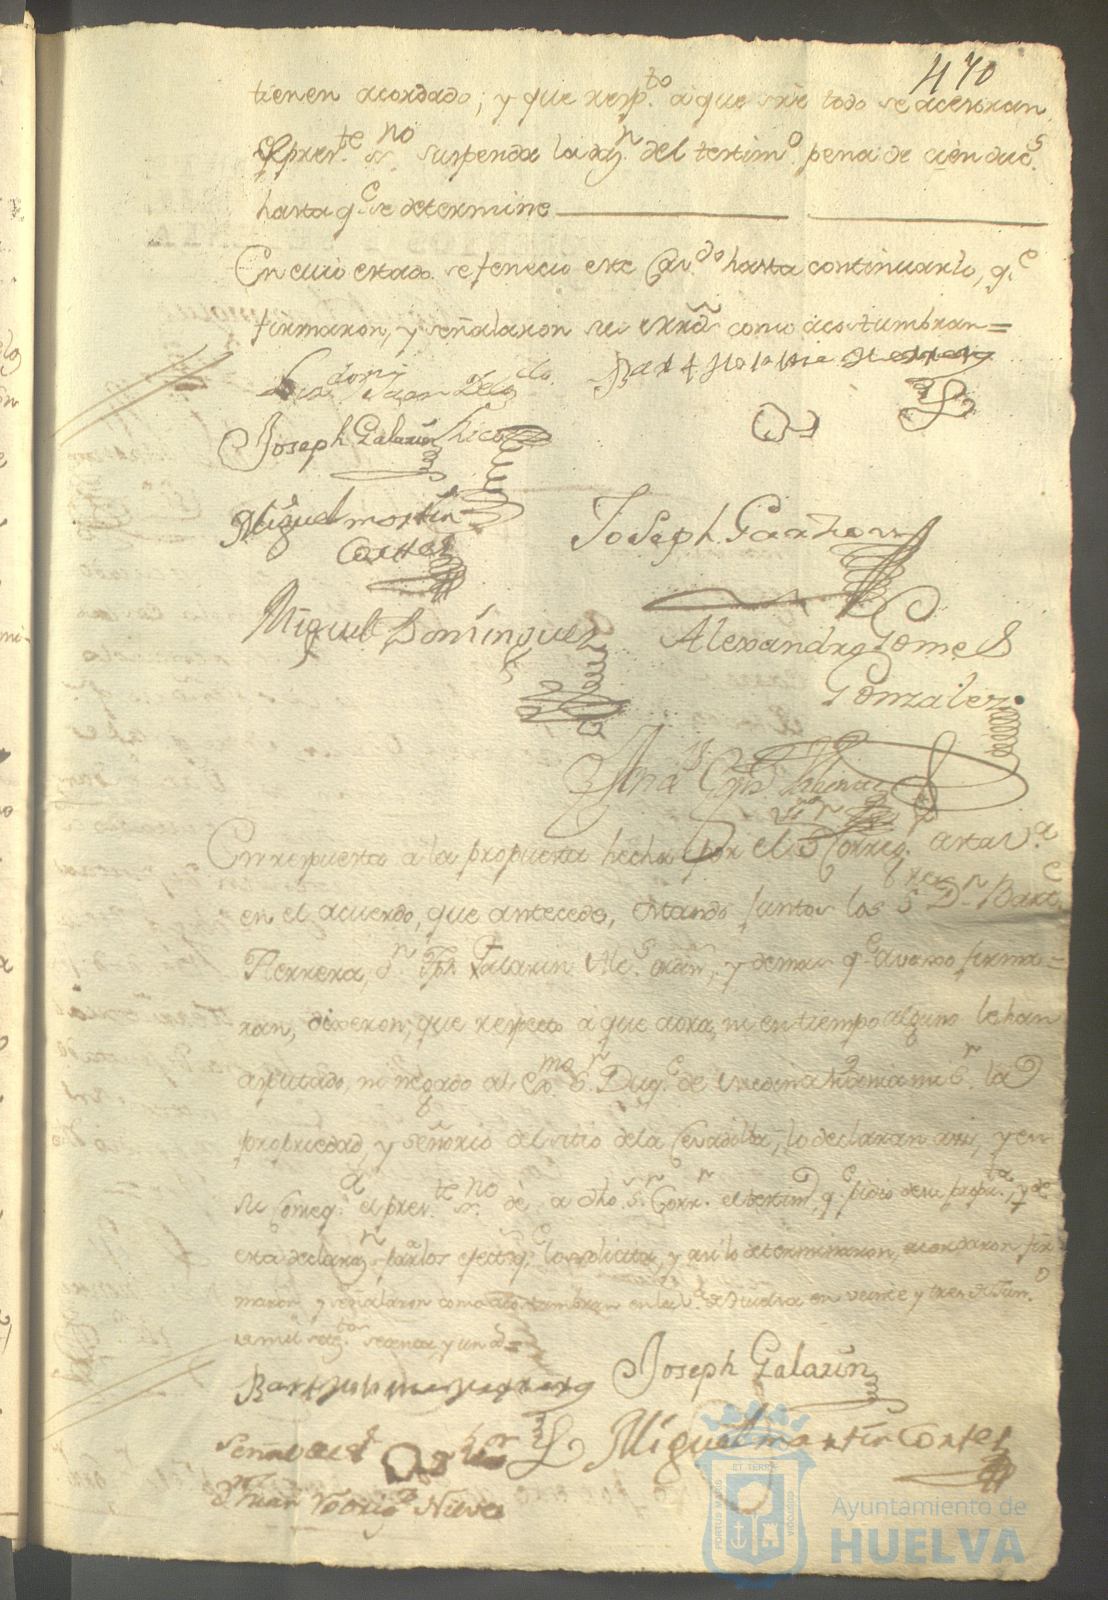 470
tienen acordado; y que resp.to a que sre todo se asesoran,
el pres.te ss.no suspenda la daz.n del testim.o pena de cien duc.s
hasta q.e se determine
En cuio estado se fenecio este Cav.do hasta continuarlo, q.e
firmaron, y señalaron su como acostumbran=
Juan
Bartholome Herrera
Joseph Galarin
Miguel martin
Cortes
Joseph Garzon
Miguel Dominguez
Alexandro Gomes
Gonzalez
En respuesta a la propuesta hecha por el S.r Correg.r a esta V.a
en el acuerdo, que antecede, estando juntos los S.res D.n Bart.e
Herrera, d.n Jph Galarin Alc.s ordin.s, y demas q.e avaxo firma=
ran, dixeron; que respecto a que aora, ni en tiempo alguno le han
disputado, ni negado al Ex.mo S.r Duq.e de Medina Sidonia mi S.r la
propriedad, y señorio del sitio de la Cevadilla, lo declaran assi, y en
su conseq.a el pres.te ss.no dè, a dho S.r Corr.r el testim.o q.e pidio de su propu.ta, y de
esta declaraz.n para los efectos q.e lo solicita, y asi lo determinaron, acordaron fir
maron, y señalaron como acostumbran en la V.a de Huelva en veinte y tres de Jun.o
de mil set.tos setenta, y un a.s=
Bartholome Herrera
Joseph Galarin
Miguel martin cortes
Señal del S.or
D.n Juan Rodrig.z Nieves
PORTUS MARIS ET TERRAE CUSTODIA
Ayuntamiento de
HUELVA